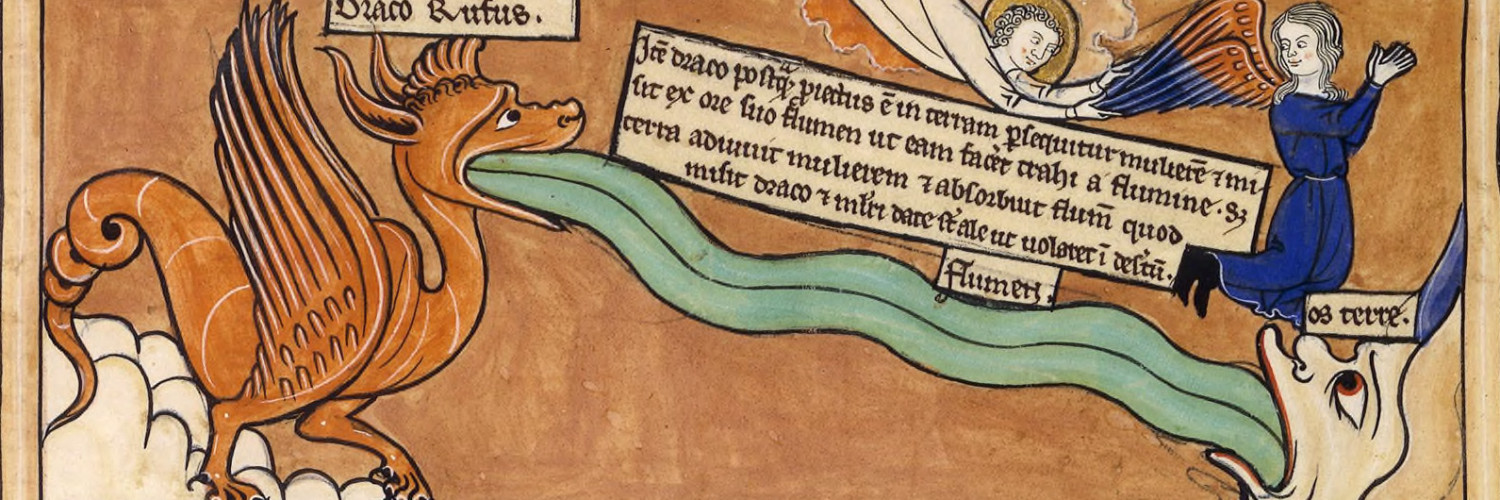 Draco Rufus.
Itē draco postq̄ᵃ ꝓiectus ē in terram ꝑsequitur mulierē ⁊ mi-
sit ex ore suo flumen ut eam facēt trahi a flumine · Sꝫ
terra adiuuit mulierem ⁊ absorbuit flum̄ quod
misit draco ⁊ ml̄ri date st̄ ale ut uolaret ī des̄tū.
flumen.
os terre.